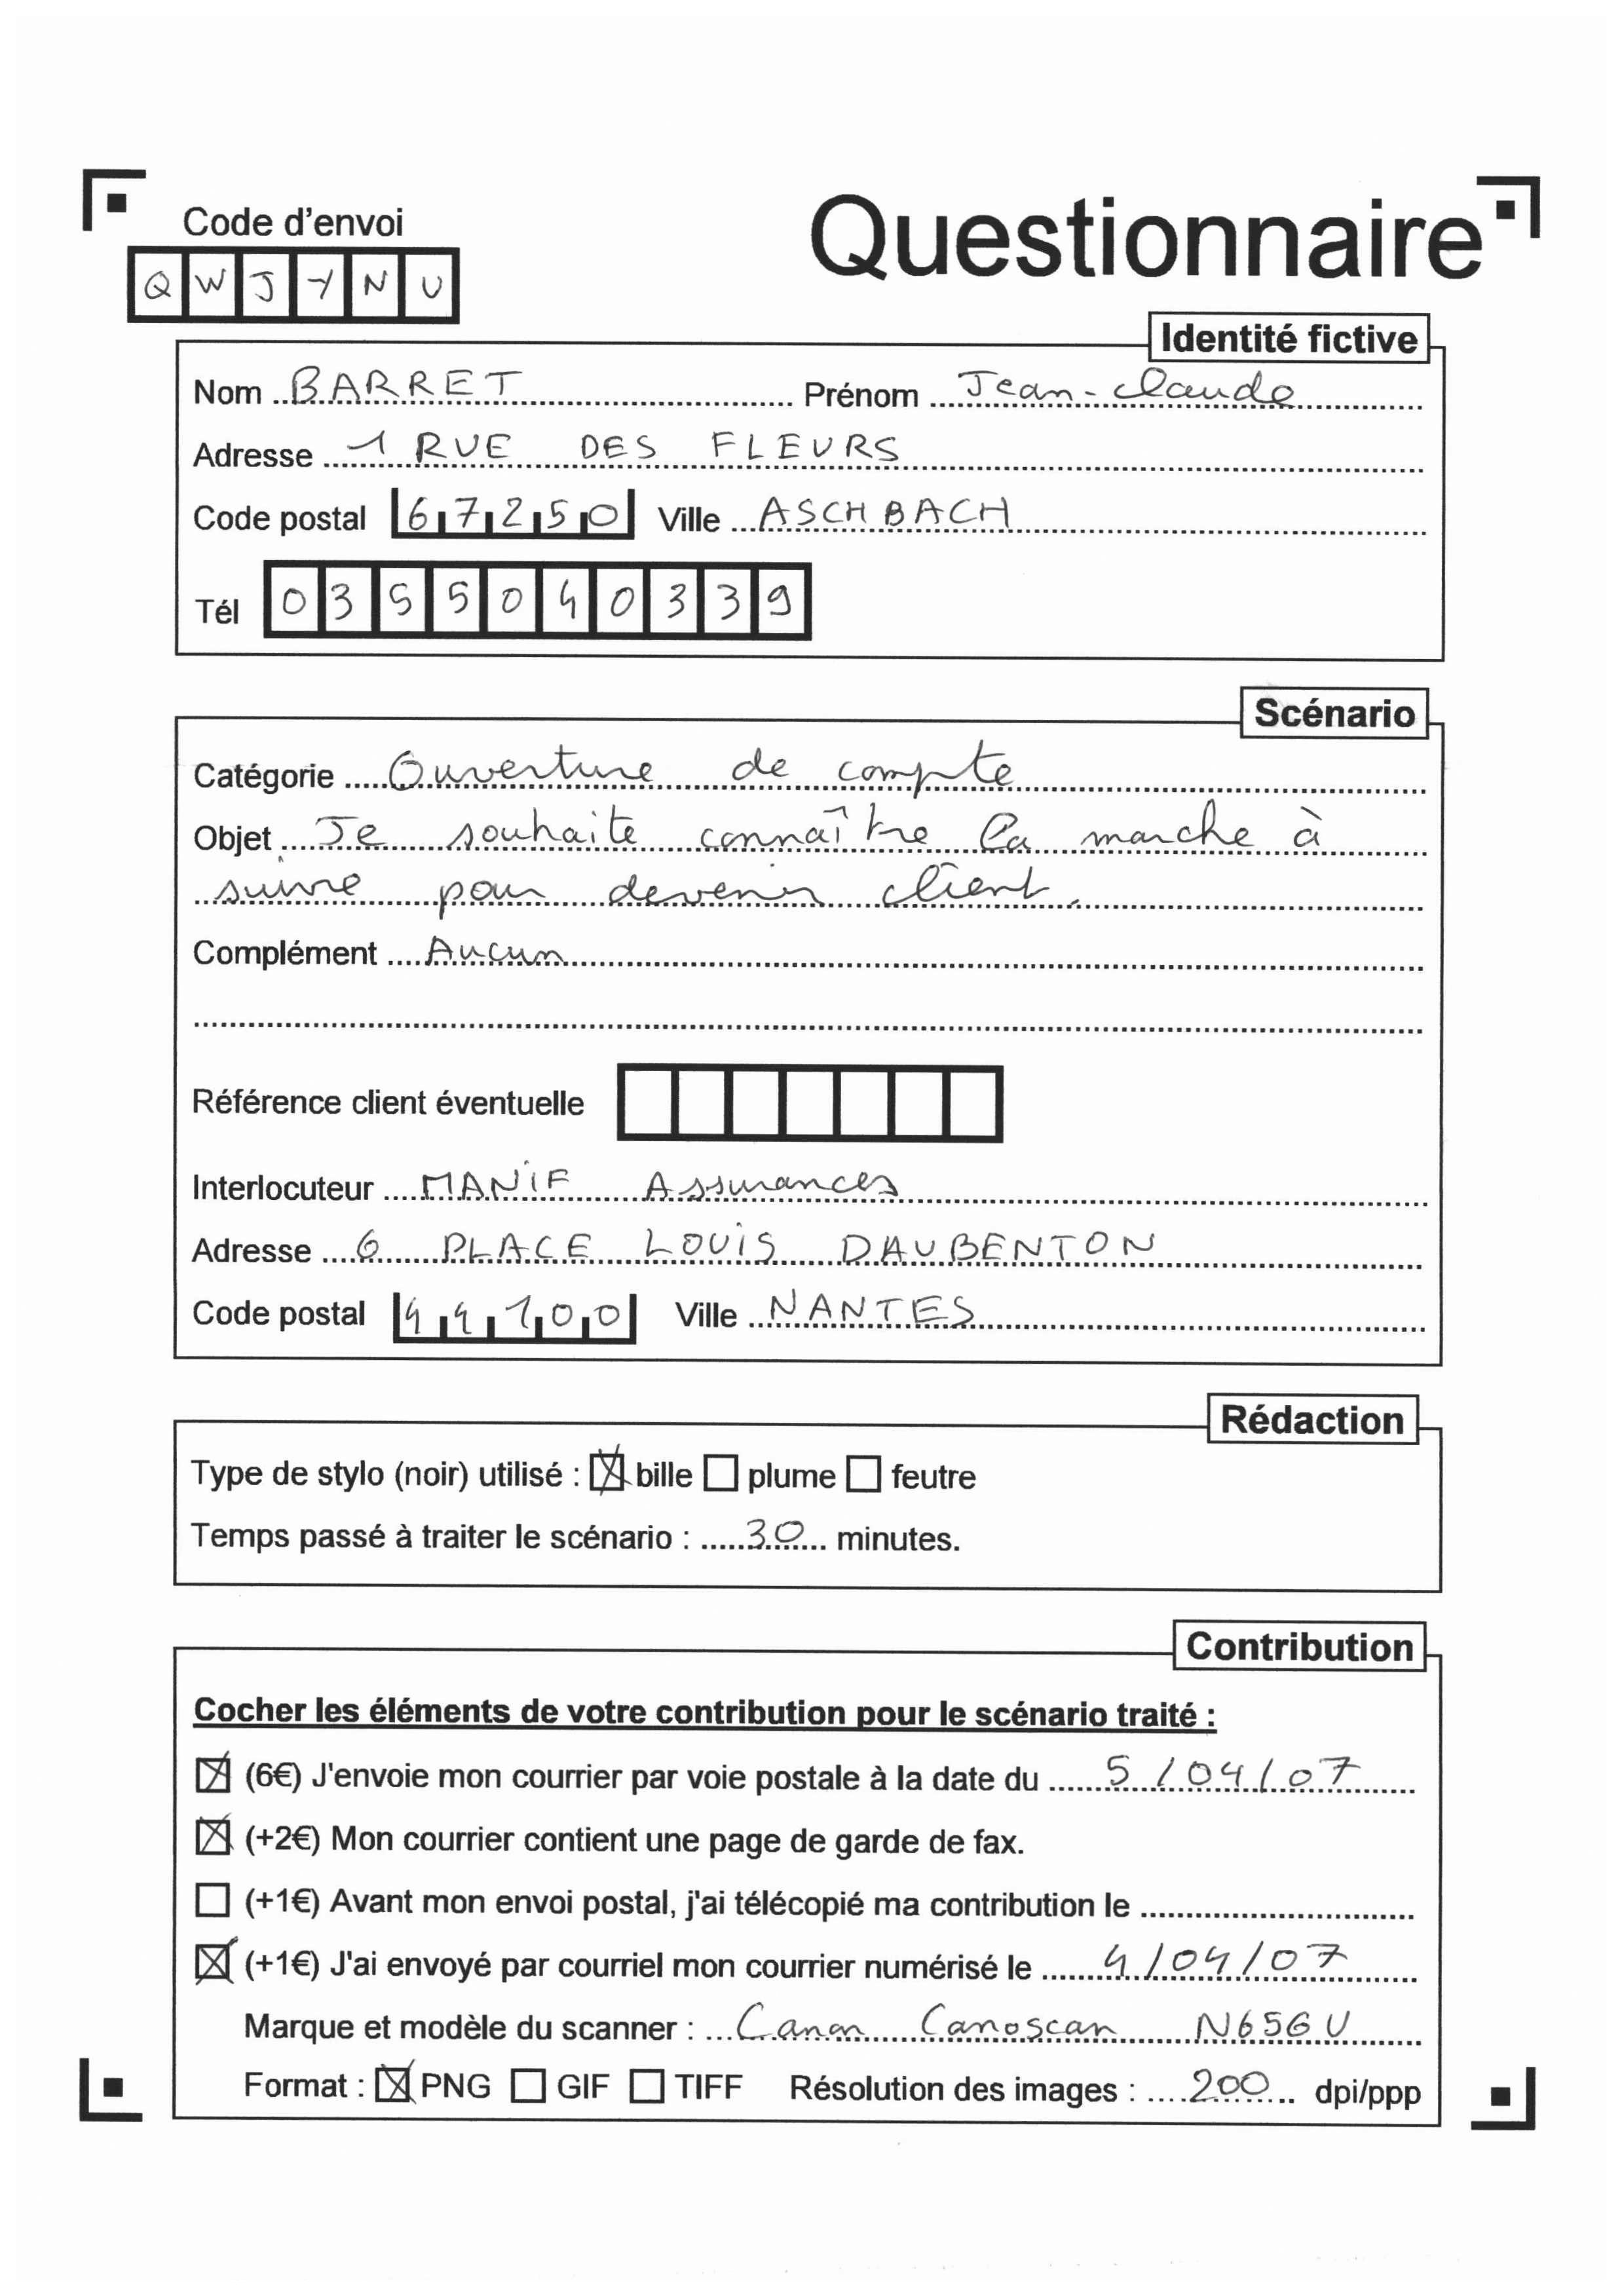 Code d'envoi
Questionnaire
QWJYNU
Identité fictive
Nom BARRET Prénom Jean-Claude
Adresse 1 RUE DES FLEURS
Code postal 67250 Ville ASCHBACH
Tél 0355040339
Scénario
Catégorie Ouverture de compte
Objet Je souhaite connaître la marche à
suivre pour devenir client.
Complément Aucun
Référence client éventuelle
Interlocuteur MANIF Assurances
Adresse 6 PLACE LOUIS DAUBENTON
Code postal 44100 Ville NANTES
Rédaction
Type de stylo (noir) utilisé : bille plume feutre
Temps passé à traiter le scénario : 30 minutes.
Contribution
Cocher les éléments de votre contribution pour le scénario traité :
(6€) J'envoie mon courrier par voie postale à la date du 5/04/07
(+2€) Mon courrier contient une page de garde de fax.
(+1€) Avant mon envoi postal, j'ai télécopié ma contribution le
(+1€) J'ai envoyé par courriel mon courrier numérisé le 4/04/07
Marque et modèle du scanner : Canon Canoscan N656U
Format : PNG GIF TIFF Résolution des images : 200 dpi/ppp